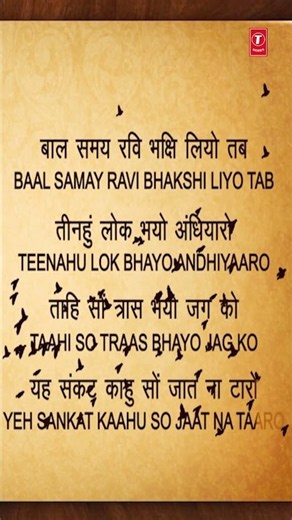 T
बाल समय रवि भक्षि लियो तब
BAAL SAMAY RAVI BHAKSHI LIYO TAB
तीनहुं लोक भयो अंधियारो
TEENAHU LOK BHAYO ANDHIYAARO
ताहि सों त्रास भयो जग को
TAAHI SO TRAAS BHAYO JAG KO
यह संकट काहु सों जात ना टारो
YEH SANKAT KAAHU SO JAAT NA TAARO